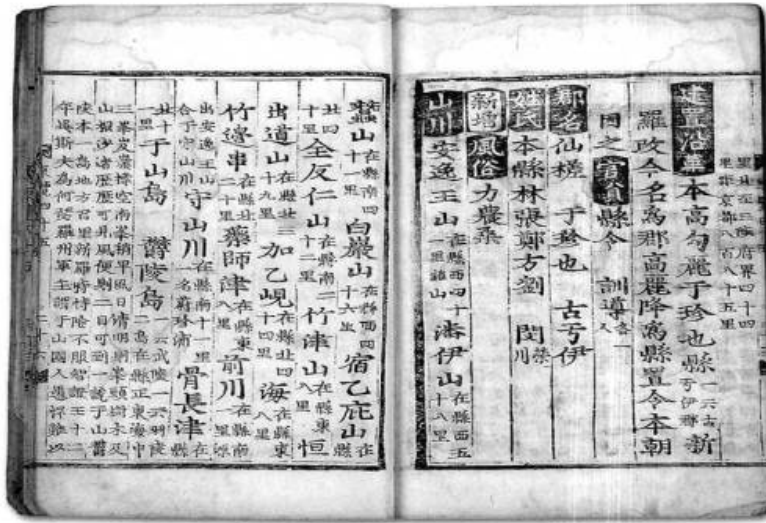 里北至三陟府界四十四
里距京都八百八十五里
建置沿革 本高勾麗于珍也縣 一云古亏伊郡 新
羅改今名爲郡高麗降爲縣置令本朝
因之 官員 縣令 訓導 各一人
郡名 仙槎 于珍也 古亏伊
姓氏 本縣林張鄭房劉 閔
新增 風俗 力農桑
山川 安逸王山 在縣西四十一里鎭山 潘伊山 在縣西五十八里
蠶山 在縣南四十一里 白巖山 在縣西四十六里 宿乙庇山 在縣
北四十里 全反仁山 在縣南二十二里 竹津山 在縣東八里 恒
出道山 在縣北三十九里 加乙峴 在縣北四十四里 海 在縣東八里
竹邊串 在縣北二十里 藥師津 在縣東八里 前川 在縣南一里源
出安逸王山合于守山川 守山川 在縣南十一里一名蔚珍浦 骨長津 在縣
北十一里 于山島 鬱陵島 一云武陵一云羽陵二島在縣正東海中
三峯岌嶪撑空南峯稍卑風日清明則峯頭樹木及
山根沙渚歷歷可見風便則二日可到一說于山鬱
陵本一島地方百里新羅時恃險不服智證王十二
年異斯夫爲何瑟羅州軍主謂于山國人愚悍難以